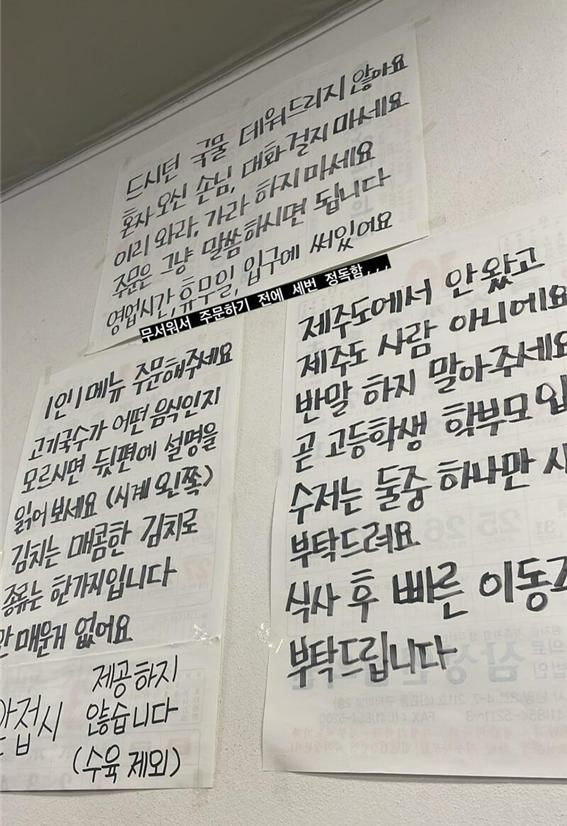 드시던 국물 데워드리지 않아요
혼자 오신 손님, 대화 걸지 마세요
이리 와라, 가라 하지마세요
주문은 그냥 말씀하시면 됩니다
영업시간, 휴무일, 입구에 써있어요
무서워서 주문하기 전에 세번 정독함...
1인 1메뉴 주문해주세요
고기국수가 어떤 음식인지
모르시면 뒷편에 설명을
읽어보세요 (시계 왼쪽)
김치는 매콤한 김치로
종류는 한가지입니다
매운게 없어요
제공하지
앞접시 않습니다
(수육 제외)
제주도에서 안왔고
제주도 사람 아니에요
반말 하지 말아주세요
곧 고등학생 학부모
수저는 둘중 하나만
부탁드려요
식사 후 빠른 이동
부탁드립니다